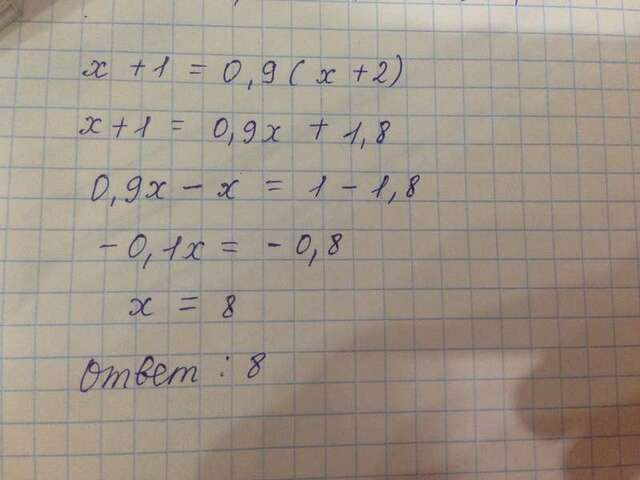 x + 1 = 0,9(x+2)
x + 1 = 0,9x + 1,8
0,9x - x = 1 - 1,8
- 0,1x = - 0,8
x = 8
Ответ : 8